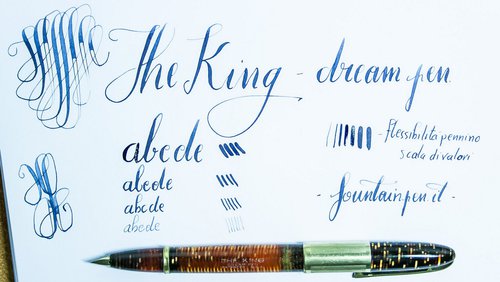 The King - dream pen
abcde
abcde
abcde
abcde
- Flessibilità pennino
scala di valori
- fountainpen.it -
THE KING